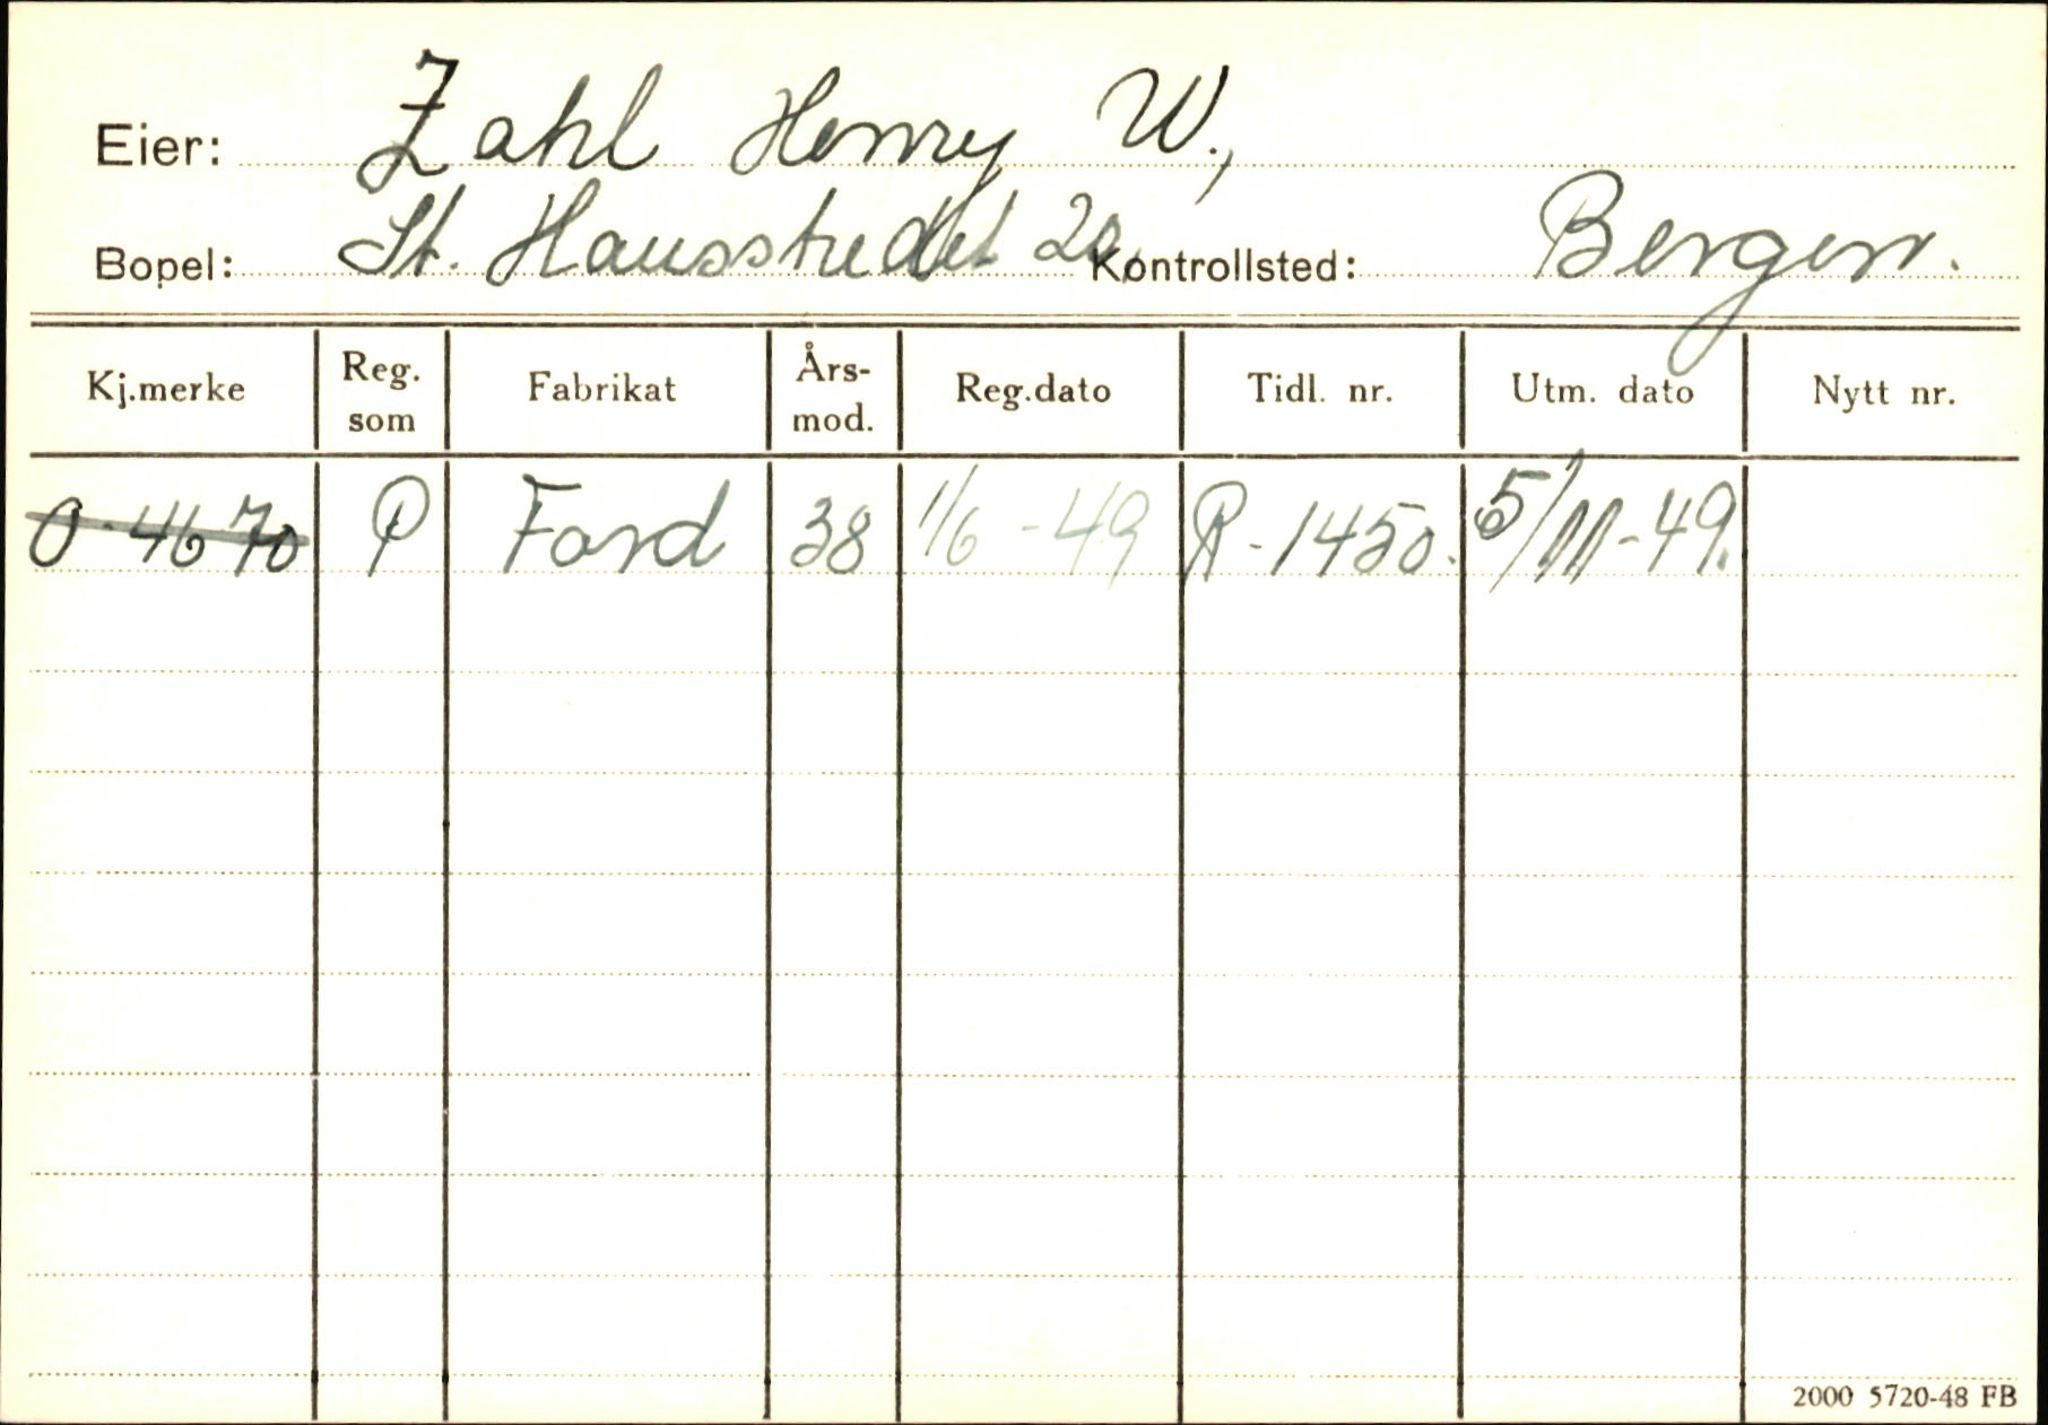 Eier: Zahl Henry W.,
Bopel: St. Hansstredet 20, Kontrollsted: Bergen.
Kj.merke Reg. som Fabrikat Års-mod. Reg.dato Tidl. nr. Utm. dato Nytt nr.
O-4670 P Ford 38 1/6-49 R-1450. 5/-49.
2000 5720-48 FB